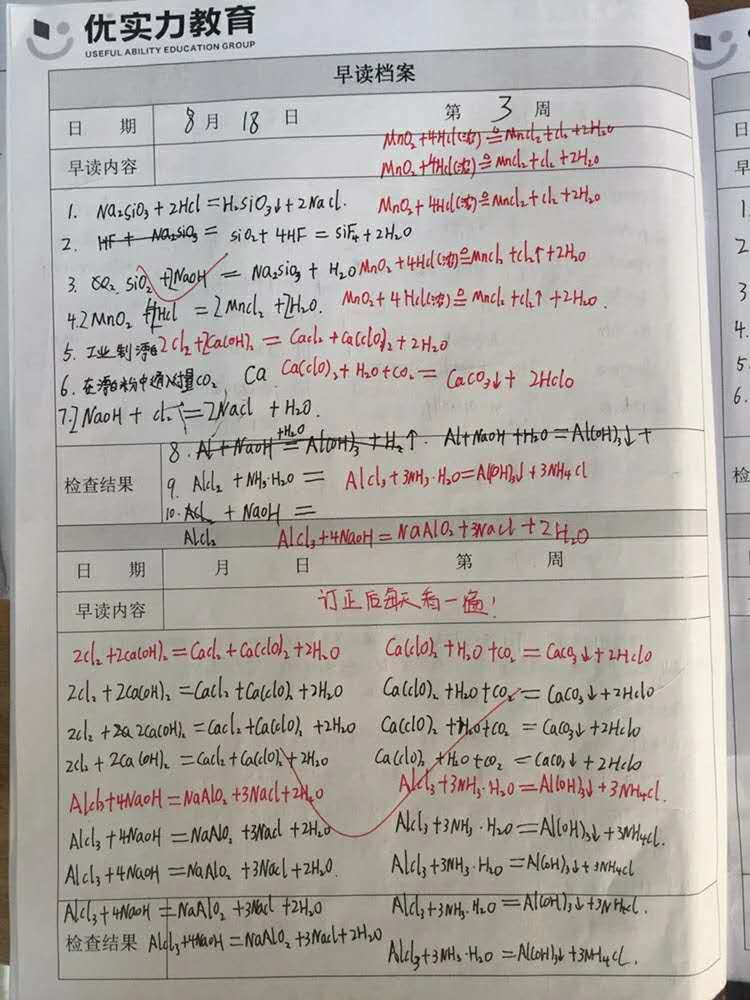 优实力教育
USEFUL ABILITY EDUCATION GROUP
早读档案
日 期 8月 18日 第 3 周
MnO₂+4Hcl(浓)≙Mncl₂+cl₂+2H₂O
早读内容 MnO₂+4Hcl(浓)≙Mncl₂+cl₂+2H₂O
1. Na₂siO₃+2Hcl=H₂siO₃↓+2Nacl. MnO₂+4Hcl(浓)≙Mncl₂+cl₂+2H₂O
2. HF+Na₂siO₃= siO₂+4HF=siF₄+2H₂O
3. CO₂ siO₂+2NaOH=Na₂siO₃+H₂O MnO₂+4Hcl(浓)≙Mncl₂+cl₂↑+2H₂O
4.2MnO₂+Hcl=2Mncl₂+2H₂O. MnO₂+4Hcl(浓)≙Mncl₂+cl₂↑+2H₂O.
5. 工业制漂白 2cl₂+2Ca(OH)₂=Cacl₂+Ca(clO)₂+2H₂O
6. 在漂白粉中通入过量CO₂ Ca Ca(clO)₂+H₂O+CO₂=CaCO₃↓+2HclO
7.2NaOH+cl₂=2Nacl+H₂O.
8. Al+NaOH+H₂O=Al(OH)₃+H₂↑. Al+NaOH+H₂O=Al(OH)₃↓+
检查结果 9. Alcl₂+NH₃·H₂O= Alcl₃+3NH₃·H₂O=Al(OH)₃↓+3NH₄cl
10. Acl₂+NaOH=
Alcl₂ Alcl₃+4NaOH=NaAlO₂+3Nacl+2H₂O
日 期 月 日 第 周
早读内容 订正后每天看一遍!
2cl₂+2ca(OH)₂=Cacl₂+Ca(clO)₂+2H₂O Ca(clO)₂+H₂O+CO₂=CaCO₃↓+2HclO
2cl₂+2Ca(OH)₂=Cacl₂+Ca(clO)₂+2H₂O Ca(clO)₂+H₂O+CO₂=CaCO₃↓+2HclO
2cl₂+2a 2Ca(OH)₂=Cacl₂+Ca(clO)₂+2H₂O Ca(clO)₂+H₂O+CO₂=CaCO₃↓+2HclO
2cl₂+2Ca(OH)₂=Cacl₂+Ca(clO)₂+2H₂O Ca(clO)₂+H₂O+CO₂=CaCO₃↓+2HclO
Alcl₃+4NaOH=NaAlO₂+3Nacl+2H₂O Alcl₃+3NH₃·H₂O=Al(OH)₃↓+3NH₄cl.
Alcl₃+4NaOH=NaAlO₂+3Nacl+2H₂O Alcl₃+3NH₃·H₂O=Al(OH)₃↓+3NH₄cl.
Alcl₃+4NaOH=NaAlO₂+3Nacl+2H₂O. Alcl₃+3NH₃·H₂O=Al(OH)₃↓+3NH₄cl
Alcl₃+4NaOH=NaAlO₂+3Nacl+2H₂O Alcl₃+3NH₃·H₂O=Al(OH)₃↓+3NH₄cl.
检查结果 Alcl₃+4NaOH=NaAlO₂+3Nacl+2H₂O Alcl₃+3NH₃·H₂O=Al(OH)₃↓+3NH₄cl.